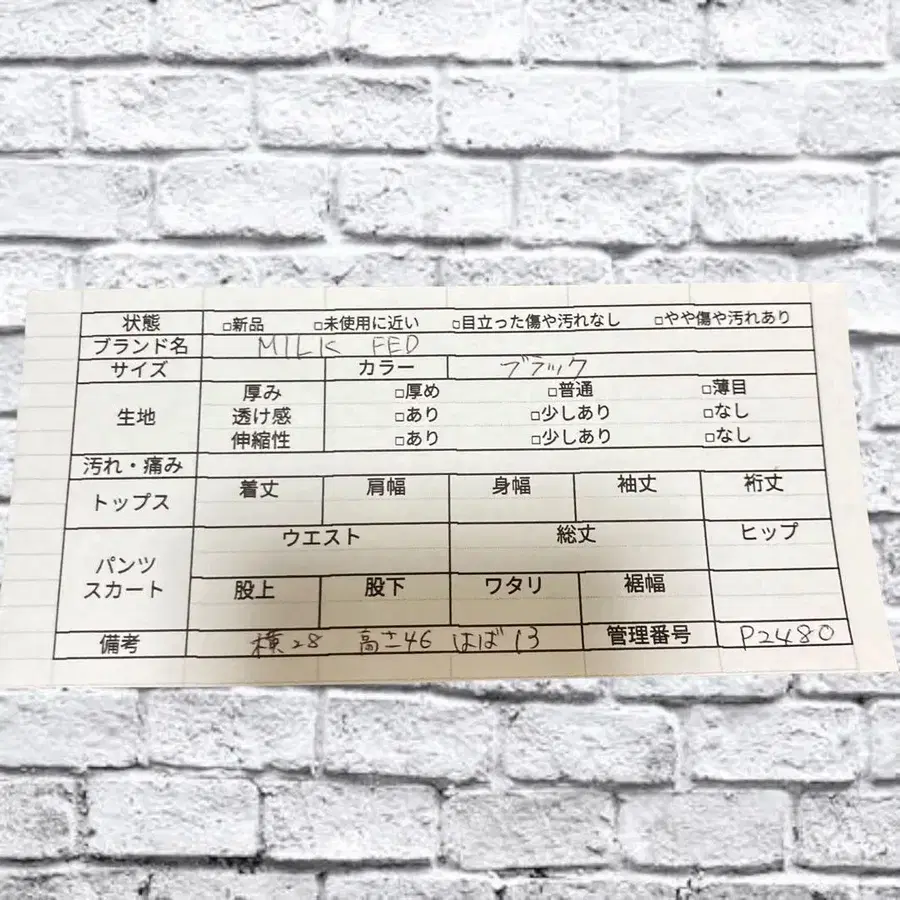 状態 □新品 □未使用に近い □目立った傷や汚れなし □やや傷や汚れあり
ブランド名 MILK FED
サイズ カラー ブラック
生地 厚み □厚め □普通 □薄目
透け感 □あり □少しあり □なし
伸縮性 □あり □少しあり □なし
汚れ・痛み
トップス 着丈 肩幅 身幅 袖丈 裄丈
パンツ スカート ウエスト 総丈 ヒップ
股上 股下 ワタリ 裾幅
備考 横28 高さ46 はば13 管理番号 P2480